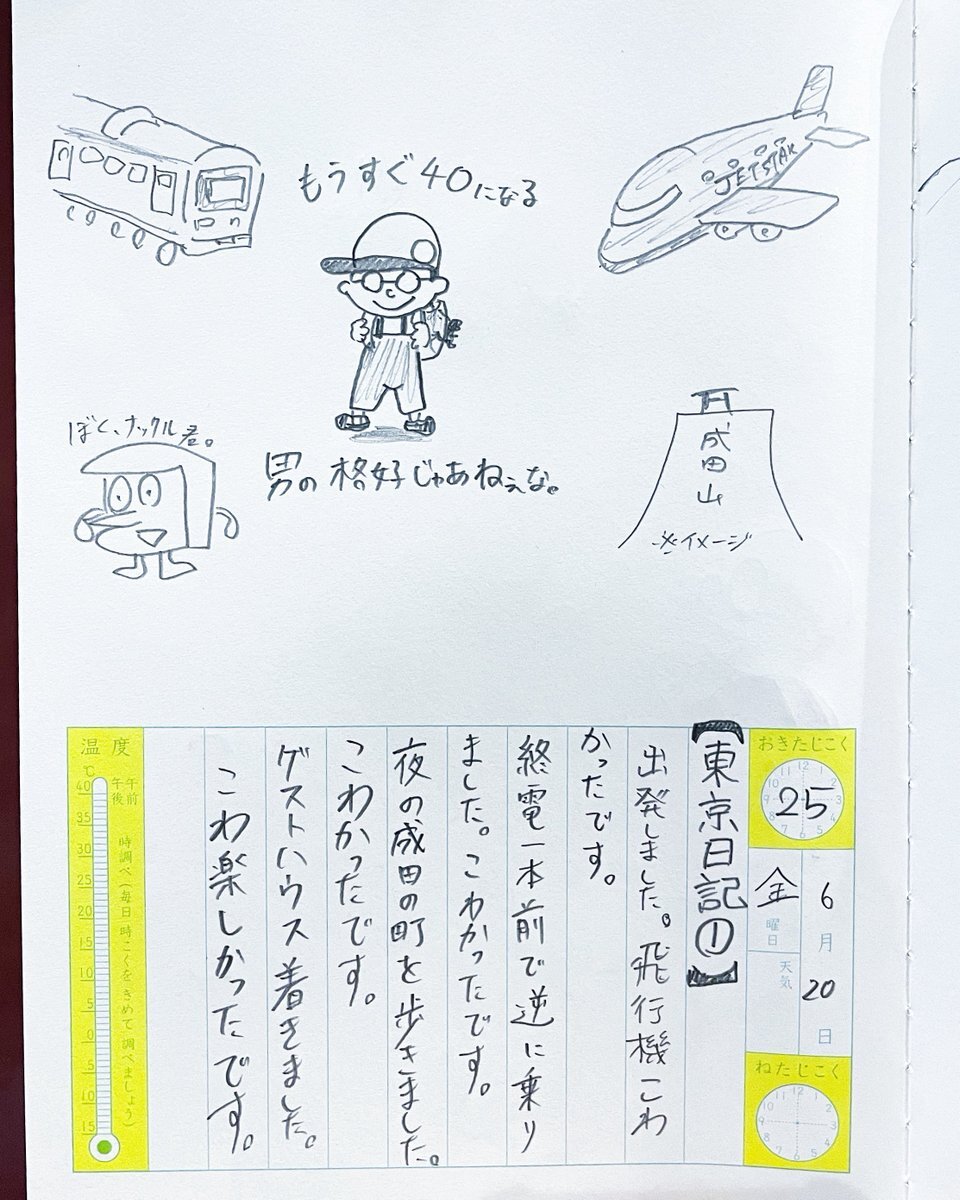 もうすぐ40になる
JETSTAR
ぼく、ナックル君。
男の格好じゃあねぇな。
成田山
※イメージ
おきたじこく
25
6月20日
金曜日
天気
ねたじこく
【東京日記①】
出発しました。飛行機こわ
かったです。
終電一本前で逆に乗り
ました。こわかったです。
夜の成田の町を歩きました。
こわかったです。
ゲストハウス着きました。
こわ楽しかったです。
温度
℃
午前
午後
時調べ(毎日時こくをきめて調べましょう)
40
35
30
25
20
15
10
5
0
5
10
15